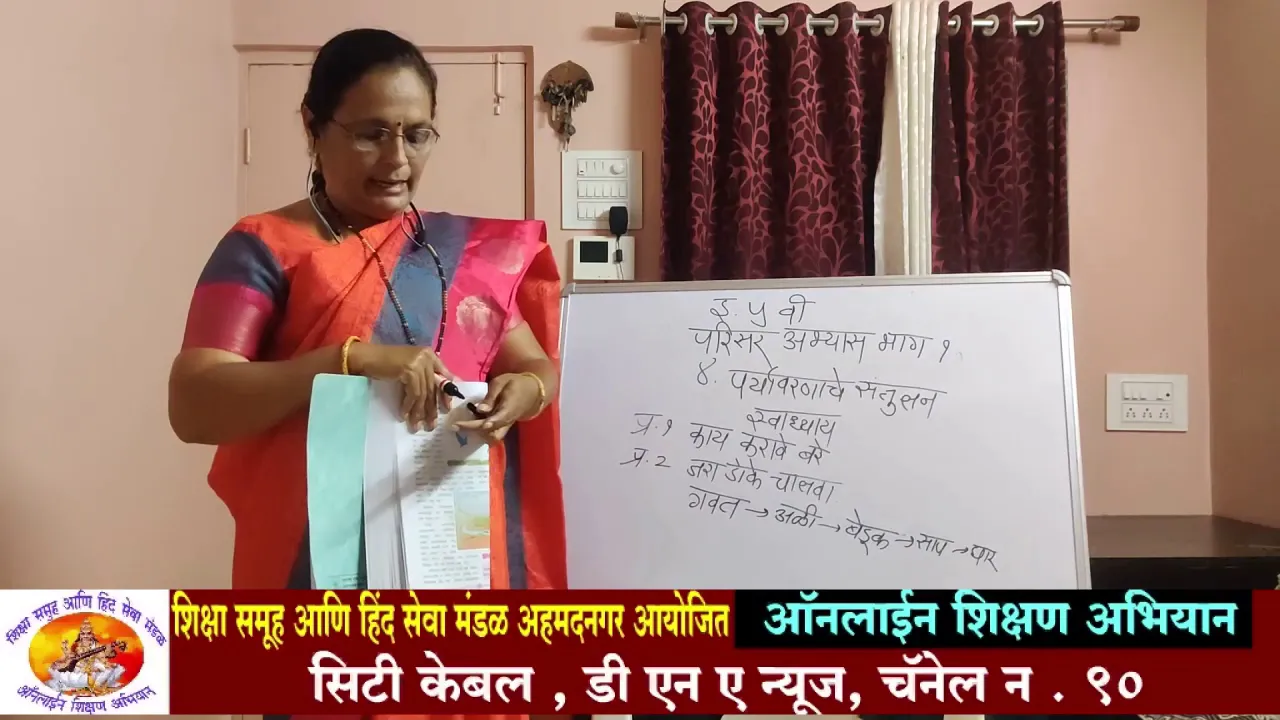 इ. ५ वी
परिसर अभ्यास भाग १
४. पर्यावरणाचे संतुलन
स्वाध्याय
प्र.१ काय करावे बरे
प्र.२ जरा डोके चालवा
गवत → अळी → बेडूक → साप → घार
शिक्षा समूह आणि हिंद सेवा मंडळ
ऑनलाईन शिक्षण अभियान
शिक्षा समूह आणि हिंद सेवा मंडळ अहमदनगर आयोजित
ऑनलाईन शिक्षण अभियान
सिटी केबल , डी एन ए न्यूज, चॅनेल न . ९०